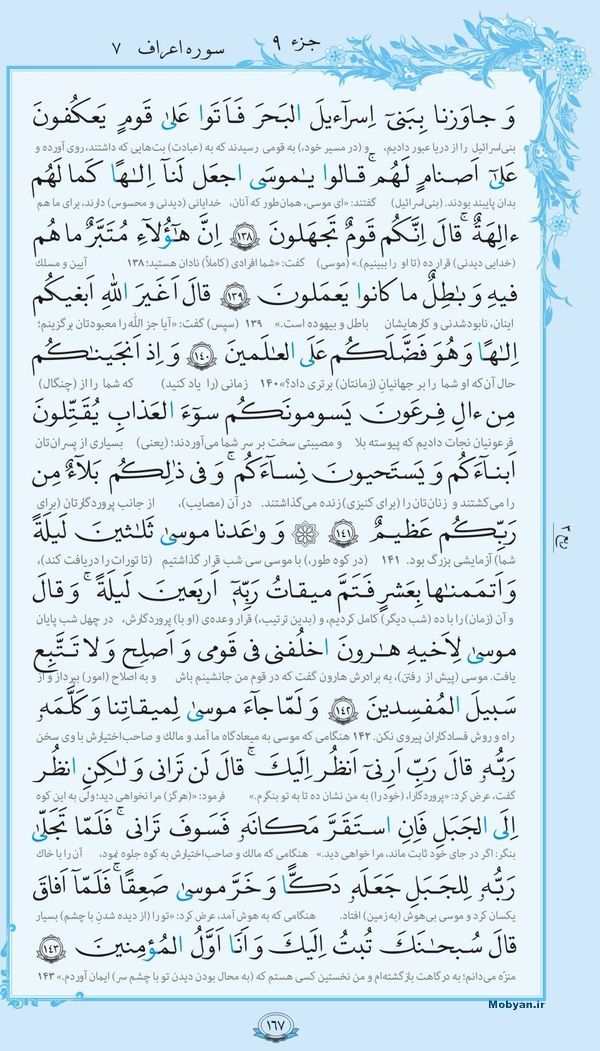 جزء ۹
سوره اعراف ۷
وَ جاوَزنا بِبَنیٓ اِسرآءیلَ البَحرَ فَاَتَوا عَلیٰ قَومٍ یَعکُفونَ
بنی‌اسرائیل را از دریا عبور دادیم، و (در مسیر خود،) به قومی رسیدند که به (عبادت) بت‌هایی که داشتند، روی آورده و
عَلیٰٓ اَصنامٍ لَهُم ۚ قالوا یٰموسَی اجعَل لَنآ اِلٰهًا کَما لَهُم
بدان پایبند بودند. (بنی‌اسرائیل) گفتند: «ای موسی، همان‌طور که آنان، خدایانی (دیدنی و محسوس) دارند، برای ما هم
ءالِهَةٌ ۚ قالَ اِنَّکُم قَومٌ تَجهَلونَ ۱۳۸ اِنَّ هٰٓؤُلآءِ مُتَبَّرٌ ما هُم
(خدایی دیدنی) قرار ده (تا او را ببینیم).» (موسی) گفت: «شما افرادی (کاملاً) نادان هستید؛ ۱۳۸ آیین و مسلک
فیهِ وَ باطِلٌ ما کانوا یَعمَلونَ ۱۳۹ قالَ اَغَیرَ اللّٰهِ اَبغیکُم
اینان، نابودشدنی و کارهایشان باطل و بیهوده است.» ۱۳۹ (سپس) گفت: «آیا جز الله را معبودتان برگزینم؛
اِلٰهًا وَ هُوَ فَضَّلَکُم عَلَی العٰلَمینَ ۱۴۰ وَ اِذ اَنجَینٰکُم
حال آن‌که او شما را بر جهانیان (زمانتان) برتری داد؟» ۱۴۰ زمانی (را یاد کنید) که شما را از (چنگال)
مِن ءالِ فِرعَونَ یَسومونَکُم سوٓءَ العَذابِ یُقَتِّلونَ
فرعونیان نجات دادیم که پیوسته بلا و مصیبتی سخت بر سر شما می‌آوردند؛ (یعنی) بسیاری از پسران‌تان
اَبنآءَکُم وَ یَستَحیونَ نِسآءَکُم ۚ وَ فی ذٰلِکُم بَلآءٌ مِن
را می‌کشتند و زنان‌تان را (برای کنیزی) زنده می‌گذاشتند. در آن (مصایب)، از جانب پروردگارتان (برای
رَبِّکُم عَظیمٌ ۱۴۱ وَ وٰعَدنا موسیٰ ثَلٰثینَ لَیلَةً
شما) آزمایشی بزرگ بود. ۱۴۱ (در کوه طور،) با موسی سی شب قرار گذاشتیم (تا تورات را دریافت کند)،
وَ اَتمَمنٰها بِعَشرٍ فَتَمَّ میقاتُ رَبِّهٖٓ اَربَعینَ لَیلَةً ۚ وَ قالَ
و آن (زمان) را با ده (شب دیگر) کامل کردیم، و (بدین ترتیب،) قرار و عده‌ی (او با) پروردگارش، در چهل شب پایان
موسیٰ لِاَخیهِ هٰرونَ اخلُفنی فی قَومی وَ اَصلِح وَ لا تَتَّبِع
یافت. موسی (پیش از رفتن)، به برادرش هارون گفت که در قوم من جانشینم باش و به اصلاح (امور) بپرداز و از
سَبیلَ المُفسِدینَ ۱۴۲ وَ لَمّا جآءَ موسیٰ لِمیقاتِنا وَ کَلَّمَهٗ
راه و روش فسادکاران پیروی نکن. ۱۴۲ هنگامی که موسی به میعادگاه ما آمد و مالك و صاحب‌اختیارش با وی سخن
رَبُّهٗ قالَ رَبِّ اَرِنیٓ اَنظُر اِلَیکَ ۚ قالَ لَن تَرانی وَ لٰکِنِ انظُر
گفت، عرض کرد: «پروردگارا، (خود را) به من نشان ده تا به تو بنگرم.» فرمود: «(هرگز) مرا نخواهی دید؛ ولی به این کوه
اِلَی الجَبَلِ فَاِنِ استَقَرَّ مَکانَهٗ فَسَوفَ تَرانی ۚ فَلَمّا تَجَلّیٰ
بنگر؛ اگر در جای خود ثابت ماند، مرا خواهی دید.» هنگامی که مالك و صاحب‌اختیارش به کوه جلوه نمود، آن را با خاك
رَبُّهٗ لِلجَبَلِ جَعَلَهٗ دَکًّا وَ خَرَّ موسیٰ صَعِقًا ۚ فَلَمّآ اَفاقَ
یکسان کرد و موسی بی‌هوش (به زمین) افتاد. هنگامی که به هوش آمد، عرض کرد: «تو را (از دیده شدن با چشم) بسیار
قالَ سُبحٰنَکَ تُبتُ اِلَیکَ وَ اَنَا اَوَّلُ المُؤمِنینَ ۱۴۳
منزّه می‌دانم؛ به درگاهت بازگشته‌ام و من نخستین کسی هستم که (به محال بودن دیدن تو با چشم سر) ایمان آوردم.» ۱۴۳
۱۶۷
Mobyan.ir